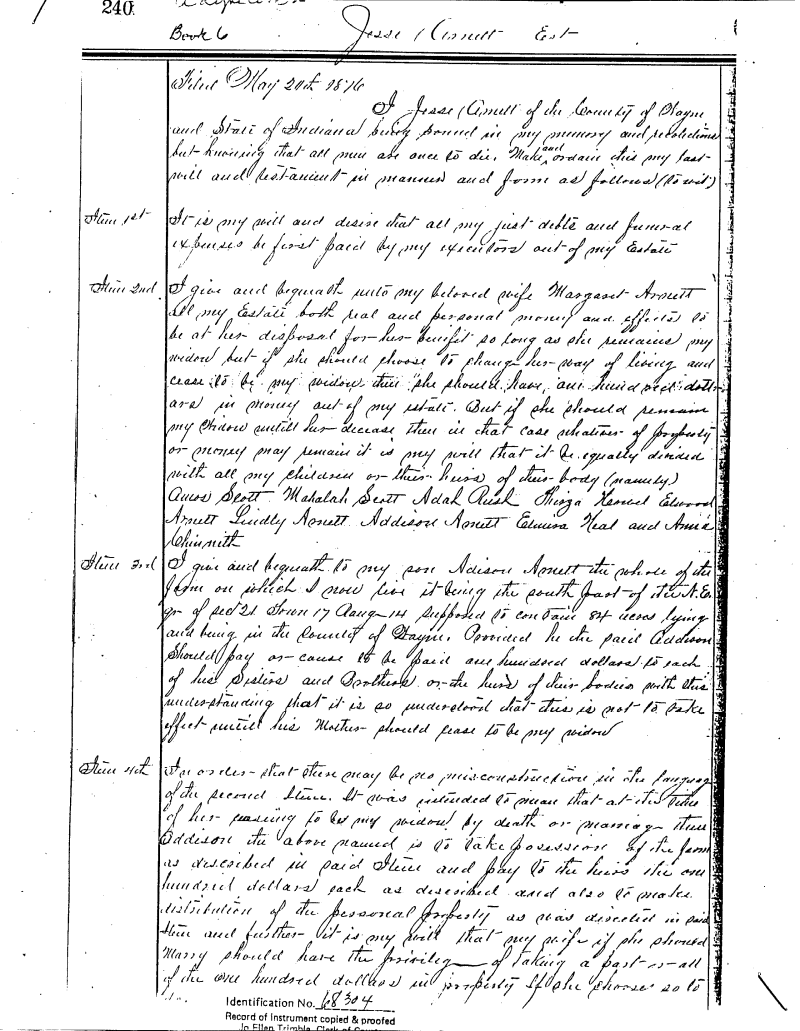 240
Book 6 Jesse Arnett Est
Filed May 20th 1876
I Jesse Arnett of the County of Wayne
and State of Indiana being sound in my memory and recolections
but knowing that all men are once to die, Make and ordain this my last
will and testament in manner and form as follows (to wit)
Item 1st It is my will and desire that all my just debts and funeral
expenses be first paid by my executors out of my Estate
Item 2nd I give and bequeath unto my beloved wife Margaret Arnett
all my Estate both real and personal money and effects to
be at her disposal for her benefit so long as she remains my
widow but if she should choose to change her way of living and
cease to be my widow then she should have one hundred doll-
ars in money out of my estate. But if she should remain
my widow untill her decease then in that case whatever of property
or money may remain it is my will that it be equally divided
with all my children or their heirs of their body (namely)
Amos Scott Mahalah Scott Adah Rush Thirza Elwood
Arnett Lindly Arnett Addison Arnett Elmira Neal and Anna
Chinneth
Item 3rd I give and bequeath to my son Adison Arnett the whole of the
farm on which I now live it being the south part of the N.E.
qr of sec 21 Town 17 Rang 14 supposed to contain 84 acres lying
and being in the County of Wayne. Provided he the said Addison
should pay or cause to be paid one hundred dollars to each
of his Sisters and Brothers or the heirs of their bodies with this
understanding that it is so understood that this is not to take
effect untill his Mother should cease to be my widow
Item 4th In order that there may be no misconstruction in the language
of the second Item. It was intended to mean that at the time
of her ceasing to be my widow by death or marriage then
Addison the above named is to take posession of the farm
as described in said Item and pay to the heirs the one
hundred dollars each as described and also to make
distribution of the personal property as was directed in said
Item and further it is my will that my wife if she should
Marry should have the privilege of taking a part or all
of the one hundred dollars in property if she choose so to
do.
Identification No. 68304
Record of Instrument copied & proofed
Jo Ellen Trimble, Clerk of